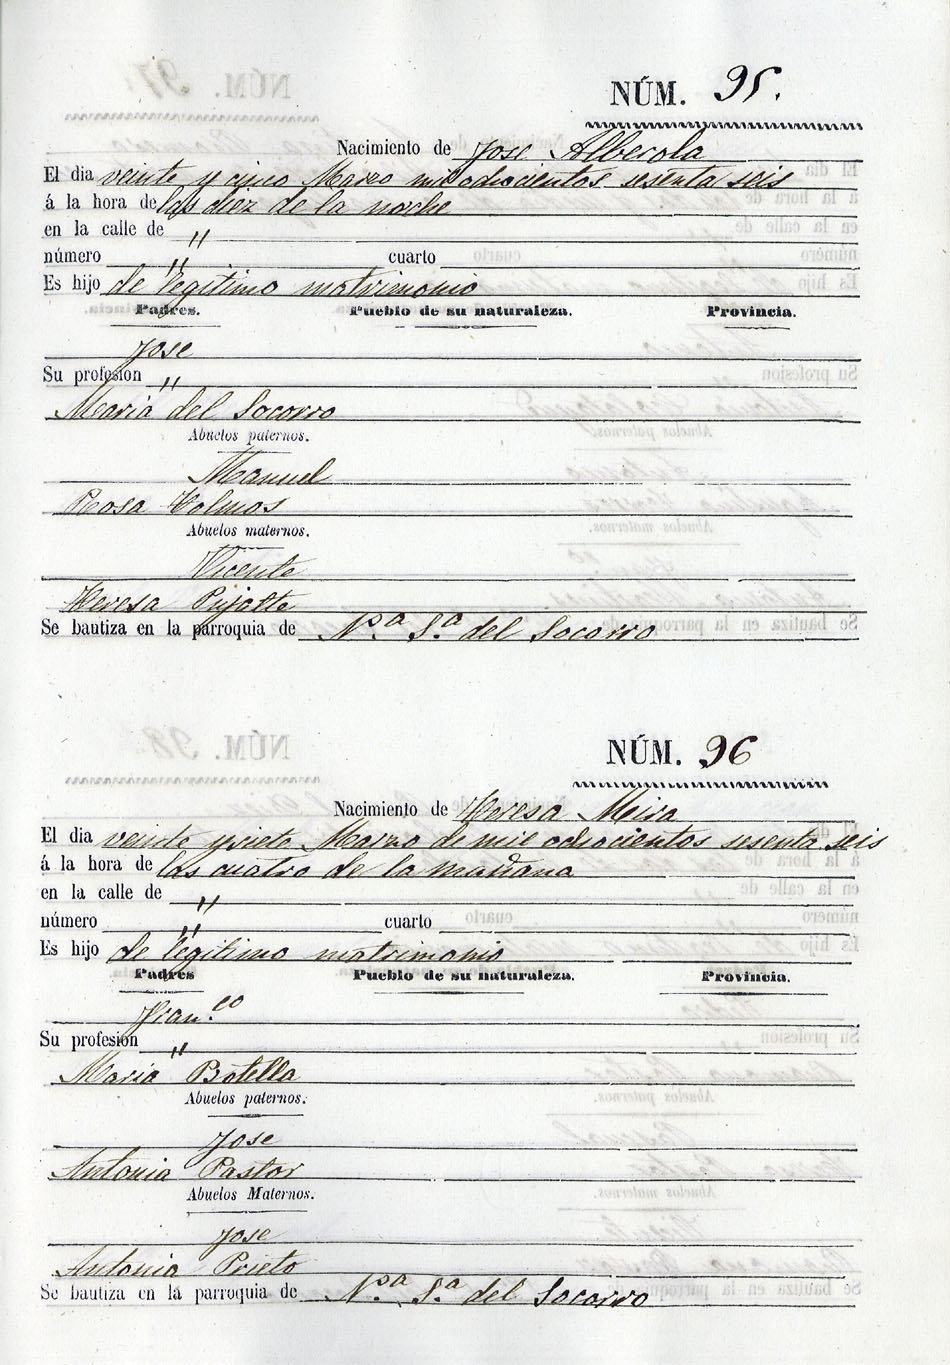 NÚM. 95.
Nacimiento de Jose Alberola
El dia veinte y cinco Marzo mil ochocientos sesenta seis
á la hora de las diez de la noche
en la calle de "
número " cuarto
Es hijo de legitimo matrimonio
Padres. Pueblo de su naturaleza. Provincia.
Jose
Su profesion "
Maria del Socorro
Abuelos paternos.
Manuel
Rosa
Abuelos maternos.
Vicente
Teresa
Se bautiza en la parroquia de Nª. Sª. del Socorro
NÚM. 96
Nacimiento de Teresa Mira
El dia veinte y siete Marzo de mil ochocientos sesenta seis
á la hora de las cuatro de la mañana
en la calle de "
número " cuarto
Es hijo de legitimo matrimonio
Padres Pueblo de su naturaleza. Provincia.
Fran.co
Su profesion "
Maria Botella
Abuelos paternos.
Jose
Antonia Pastor
Abuelos Maternos.
Jose
Antonia Prieto
Se bautiza en la parroquia de Nª. Sª. del Socorro